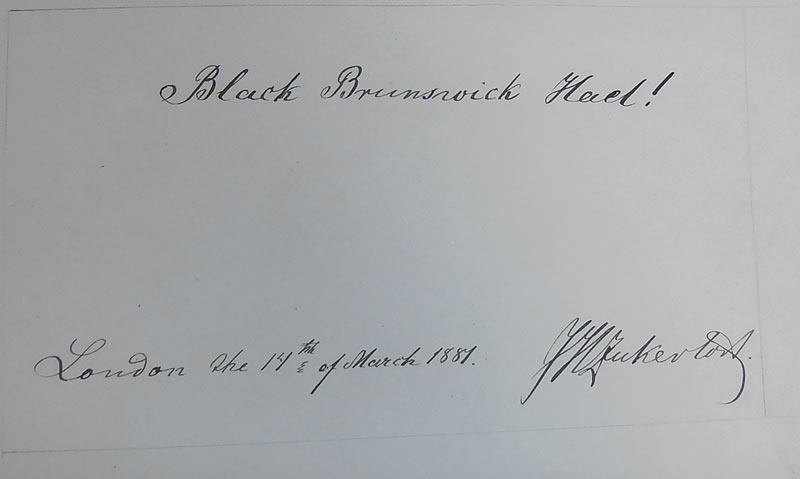 Black Brunswick Hael!
London the 14th of March 1881. JHZukertort.